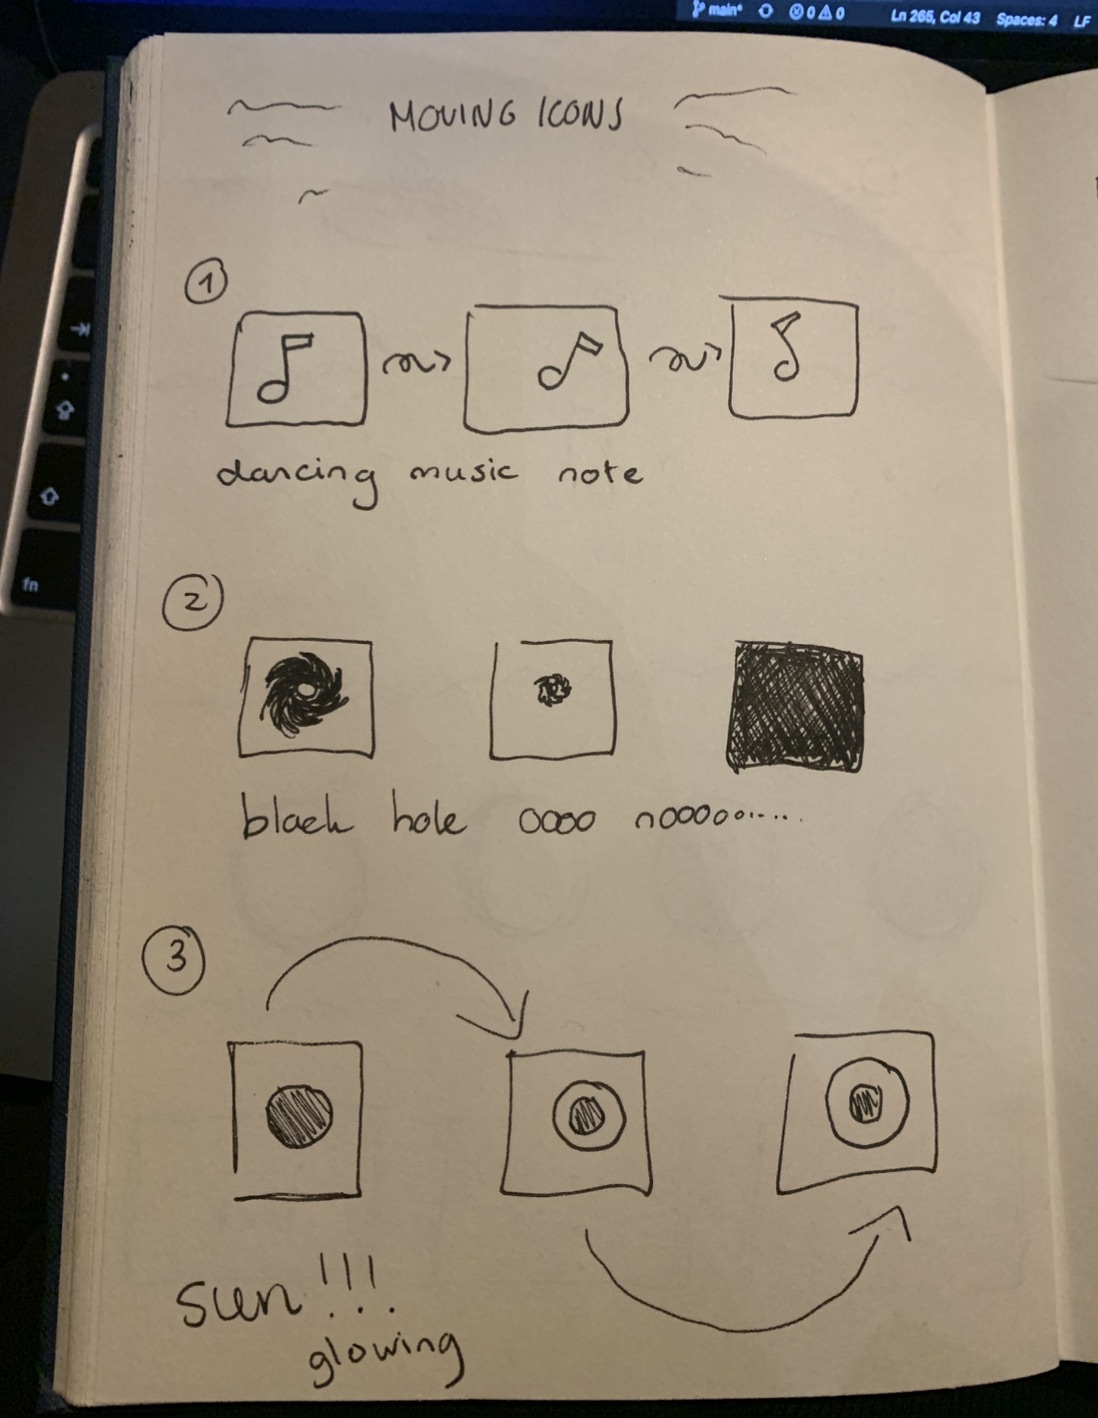 main* 0 0 Ln 265, Col 43 Spaces: 4 LF
MOVING ICONS
1
dancing music note
2
black hole oooo nooooo.....
3
sun!!!
glowing
fn